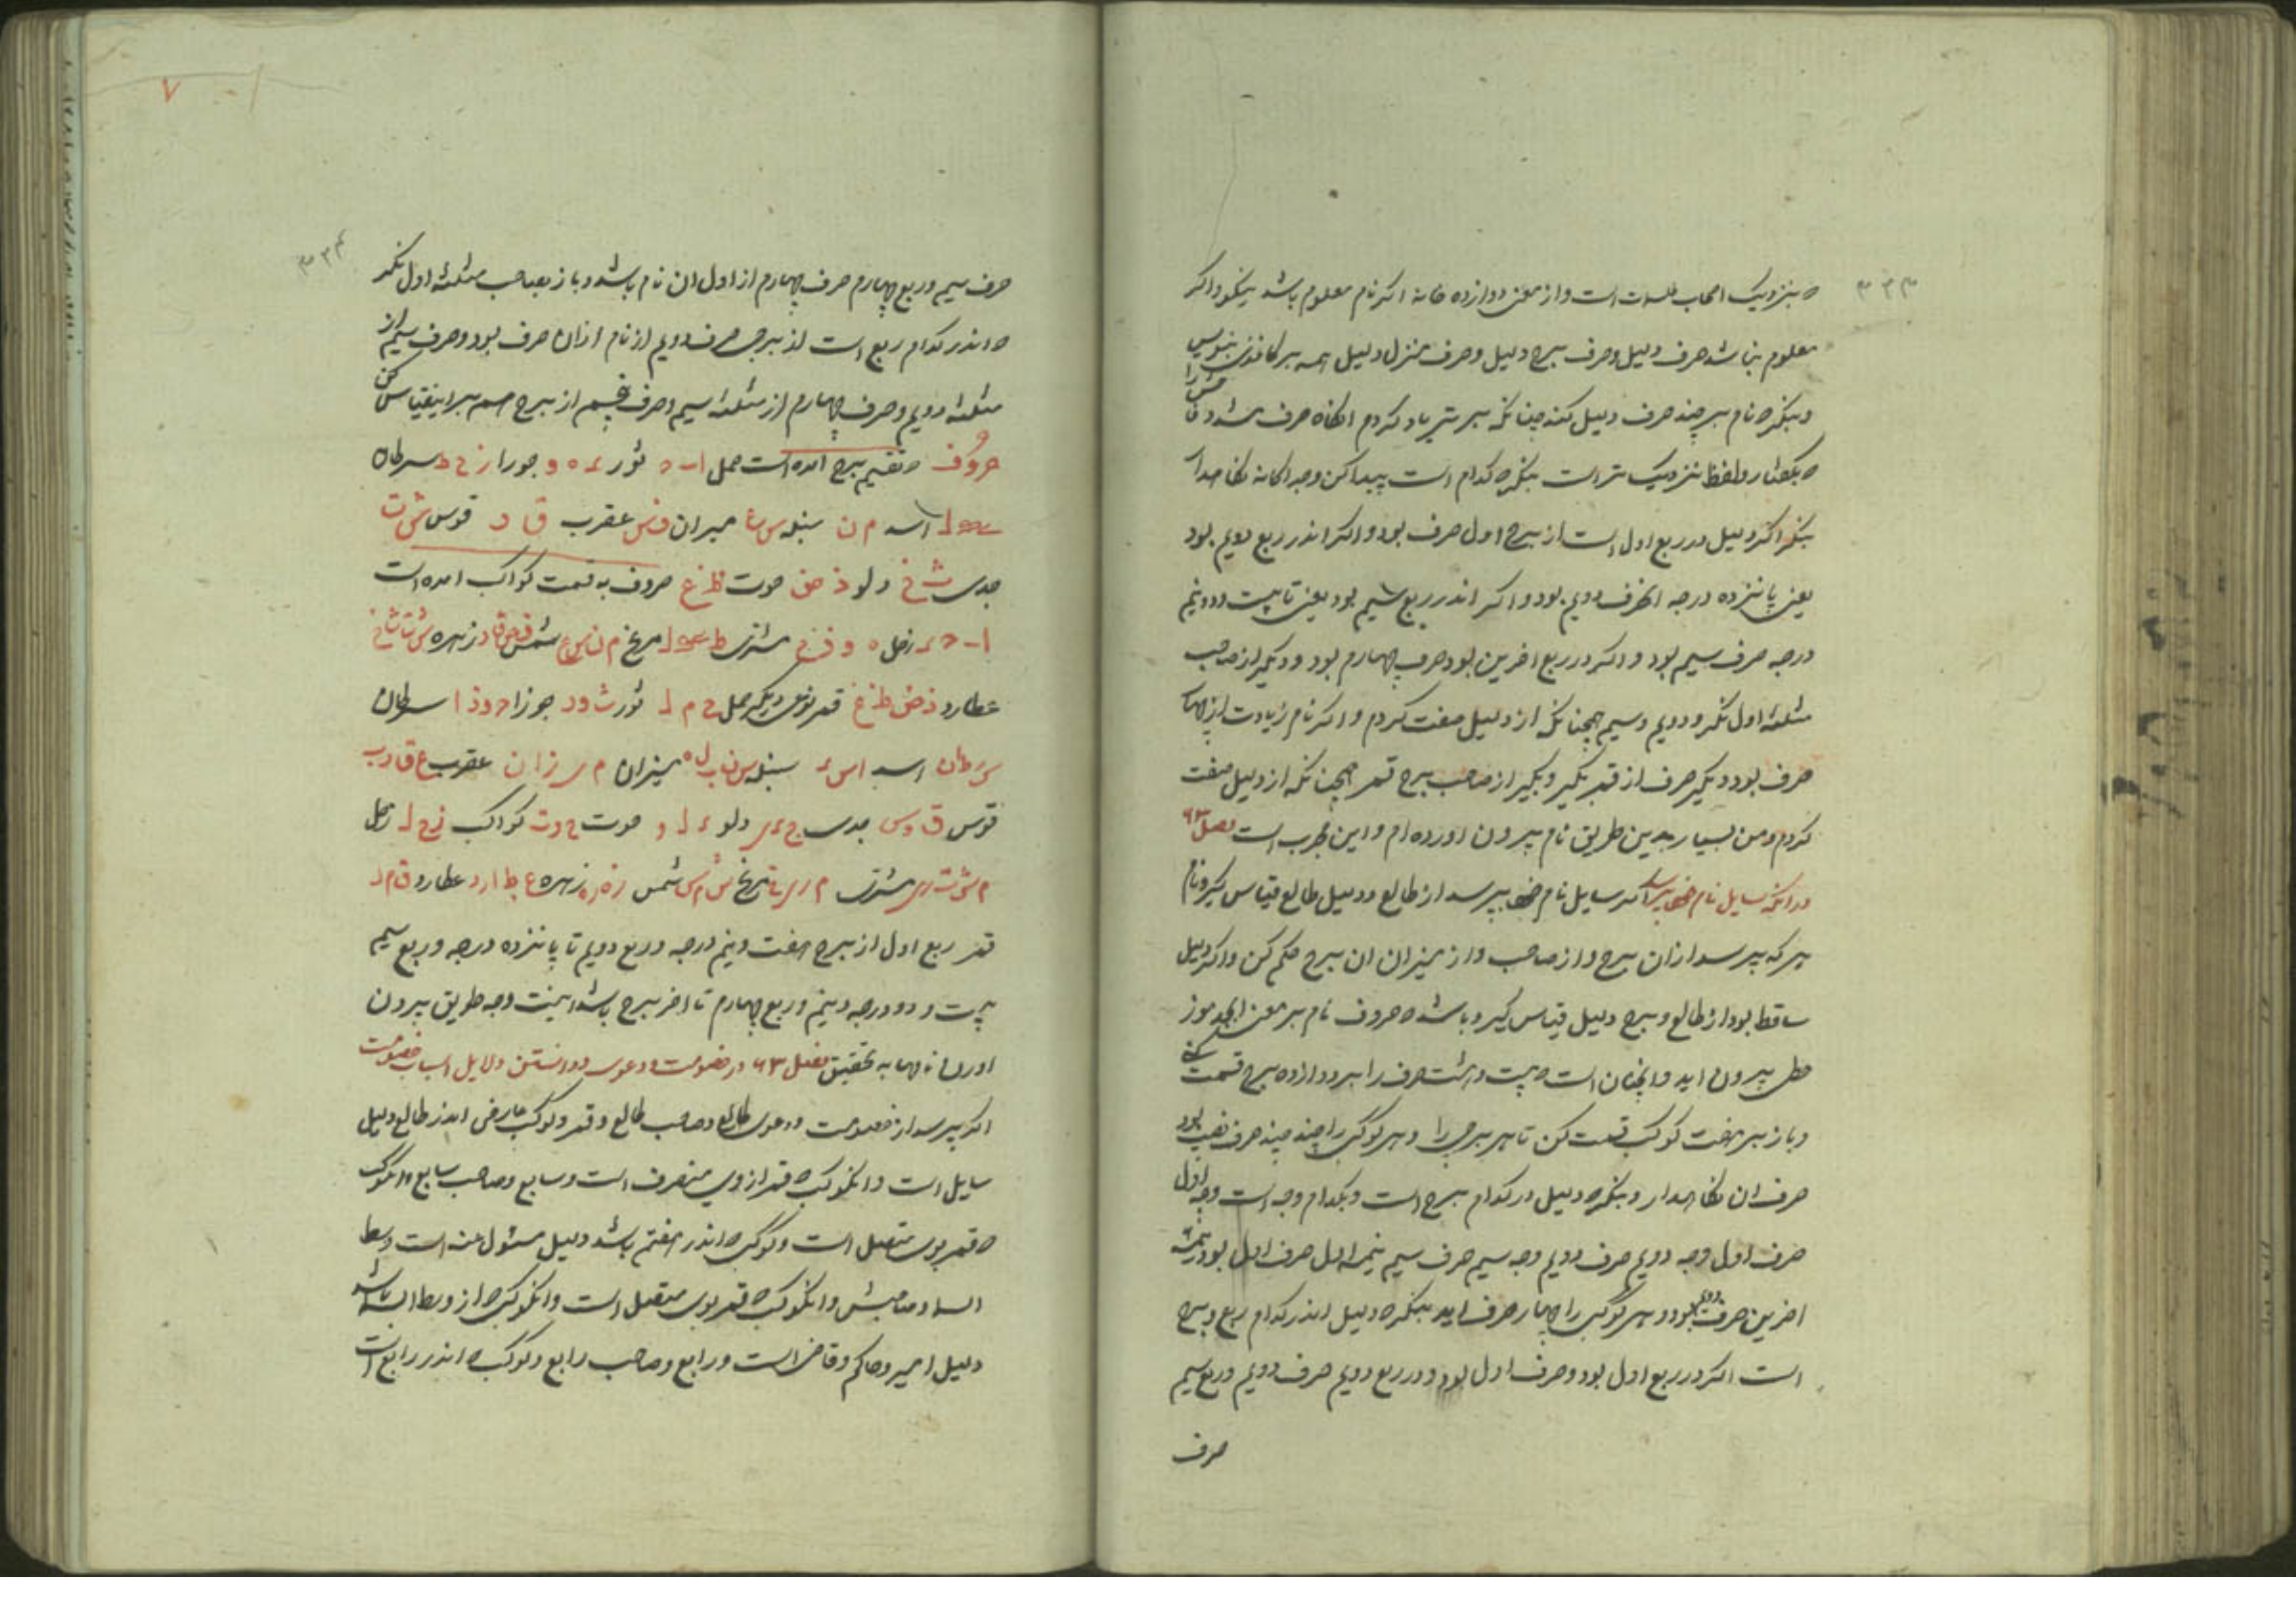 ۳۳۳
که بنزدیک اصحاب طلسمات است و از معنی دوازده خانه اکر نام معلوم باشد نیکو و اکر
معلوم نباشد حرف دلیل و حرف برج دلیل و حرف منزل دلیل همه بر کاغذی بنویس
و بنکر که نام بر چند حرف دلیل کند چنانکه برتر یاد کردم انکاه حرف
که بکفتار و لفظ نزدیک تر است بنکر که کدام است پیدا کن و جداکانه نکاهدار
بنکر اکر دلیل در ربع اول است از برج اول حرف بود و اکر اندر ربع دویم بود
یعنی پانزده درجه حرف دویم بود و اکر اندر ربع سیم بود یعنی تا بیست و دو نیم
درجه حرف سیم بود و اکر در ربع اخرین بود حرف چهارم بود و دیکر از صاحب
مثلثه اول نکر و دویم و سیم همچنانکه از دلیل صفت کردم و اکر نام زیادت از چهار
حرف بود دیکر حرف از قمر بکیر و بکیر از صاحب برج قمر همچنانکه از دلیل صفت
کردم و من بسیار بدین طریق نام بیرون اورده ام و این مجرب است فصل ۶۲
در انکه سایل نام خصم پرسد اکر سایل نام خصم بپرسد از طالع و دلیل طالع قیاس کیر و نام
هر که بپرسد ازان برج و از صاحب و از میزان ان برج حکم کن و اکر دلیل
ساقط بود از طالع و برج دلیل قیاس کیر و باشد که حروف نام بر معنی ابجد هوز
حطی بیرون اید و انچنان است که بیست و هشت حرف را بر دوازده برج قسمت کنی
و باز بر هفت کوکب قسمت کن تا هر برجی را و هر کوکبی را چند چند حرف نصیب بود
حرف ان نکاهدار و بنکر که دلیل در کدام برج است و بکدام وجه است وجه اول
حرف اول وجه دویم حرف دویم وجه سیم حرف سیم نیمه اول حرف اول بود نیمه
اخرین حرف دویم بود و هر کوکبی را چهار حرف اید بنکر که دلیل اندر کدام ربع و برج
است اکر در ربع اول بود و حرف اول بود و در ربع دویم حرف دویم و ربع سیم
حرف
۷
۳۳۴
حرف سیم و ربع چهارم حرف چهارم از اول ان نام باشد و باز بصاحب مثلثه اول نکر
که اندر کدام ربع است از برجی حرف دویم از نام ازان حرف بود و حرف سیم از
مثلثه دویم و حرف چهارم از مثلثه سیم و حرف پنجم از برج هم برین قیاس کن
حروف که تقسیم برج امده است حمل ا ب ج ثور د ه و جوزا ز ح ط سرطان
ی ک ل اسد م ن سنبله س ع میزان ف ص عقرب ق ر قوس ش ت
جدی ث خ دلو ذ ض حوت ظ غ حروف به قسمت کواکب امده است
ا ب ج د زحل ه و ز ح مشتری ط ی ک ل مریخ م ن س ع شمس ف ص ق ر زهره ش ت ث خ
عطارد ذ ض ظ غ قمر نوعی دیکر حمل ح م ل ثور ث و ر جوزا ج و ز ا سرطان
س ر ط ان اسد ا س د سنبله س ن ب ل ه میزان م ی ز ا ن عقرب ع ق ر ب
قوس ق و س جدی ج د ی دلو د ل و حوت ح و ت کواکب ز ح ل زحل
م ش ت ر ی مشتری م ر ی خ مریخ ش م س شمس ز ه ر ه زهره ع ط ا ر د عطارد ق م ر
قمر ربع اول از برج هفت و نیم درجه و ربع دویم تا پانزده درجه و ربع سیم
بیست و دو درجه و نیم و ربع چهارم تا اخر برج باشد اینست وجه طریق بیرون
اوردن نامها به تحقیق فصل ۶۳ در خصومت و دعوی و دانستن دلایل اسباب خصومت
اکر بپرسد از خصومت و دعوی طالع و صاحب طالع و قمر و کوکب عارضی اندر طالع دلیل
سایل است و انکوکب که قمر از وی منصرف است و سابع و صاحب سابع و انکوکب
که قمر بوی متصل است و کوکب که اندر هفتم باشد دلیل مسئول عنه است وسط
السما و صاحبش و انکوکب که قمر بوی متصل است و انکوکب که از وسط السما باشد
دلیل امیر و حاکم و قاضی است و رابع و صاحب رابع و کوکب که اندر رابع است